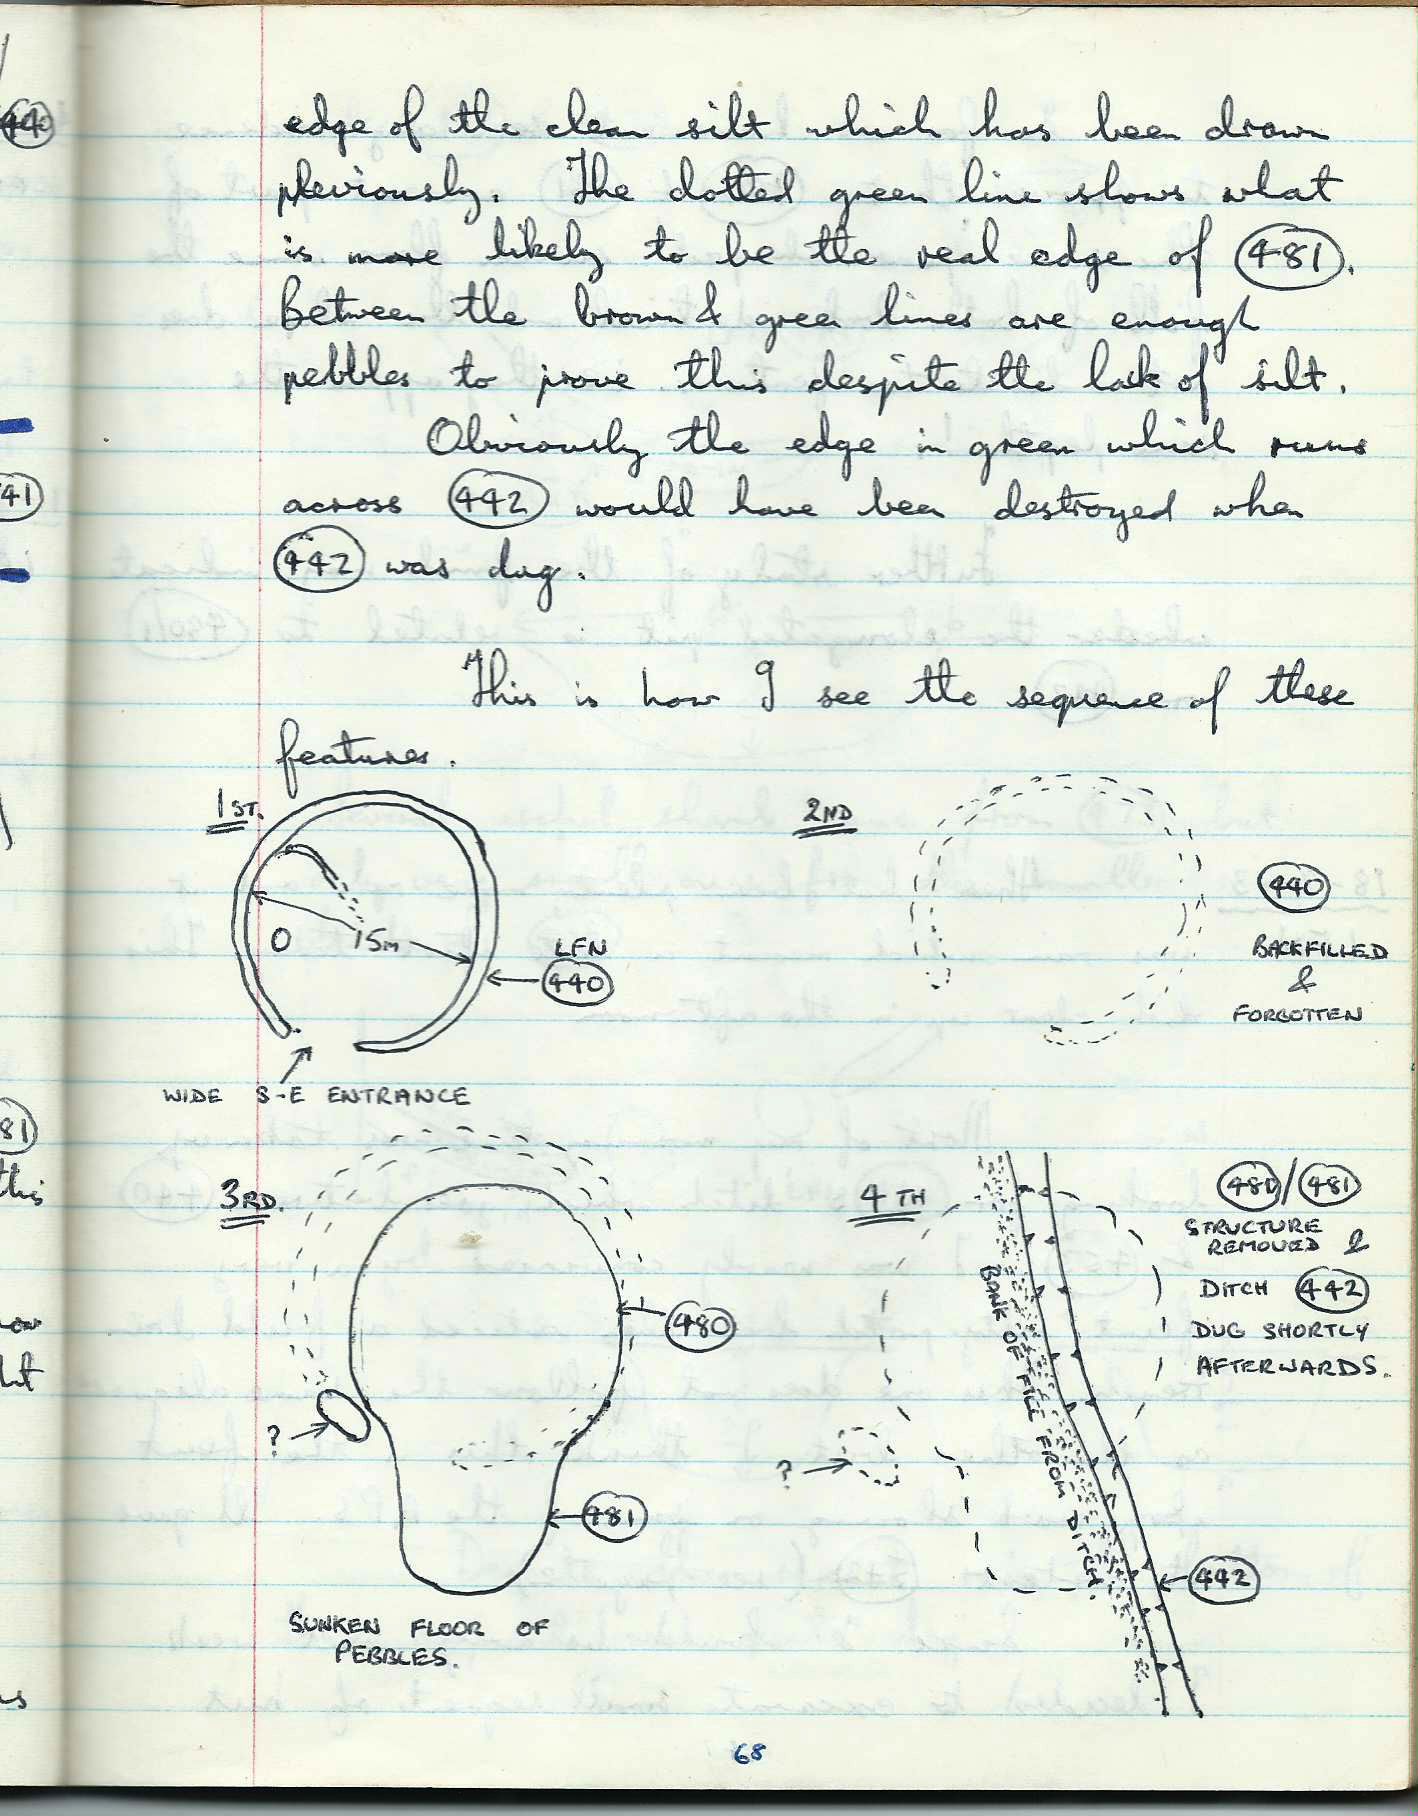 edge of the clean silt which has been drawn
previously. The dotted green line shows what
is more likely to be the real edge of 481.
Between the brown & green lines are enough
pebbles to prove this despite the lack of silt.
Obviously the edge in green which runs
across 442 would have been destroyed when
442 was dug.
This is how I see the sequence of these
features.
1ST.
15m
LFN
440
WIDE S-E ENTRANCE
2ND
440
BACKFILLED
&
FORGOTTEN
3RD.
480
?
481
SUNKEN FLOOR OF
PEBBLES.
4TH
480/481
STRUCTURE
REMOVED &
DITCH 442
DUG SHORTLY
AFTERWARDS.
BANK OF FILL FROM DITCH.
?
442
68
440
41
81
this
ow
ht